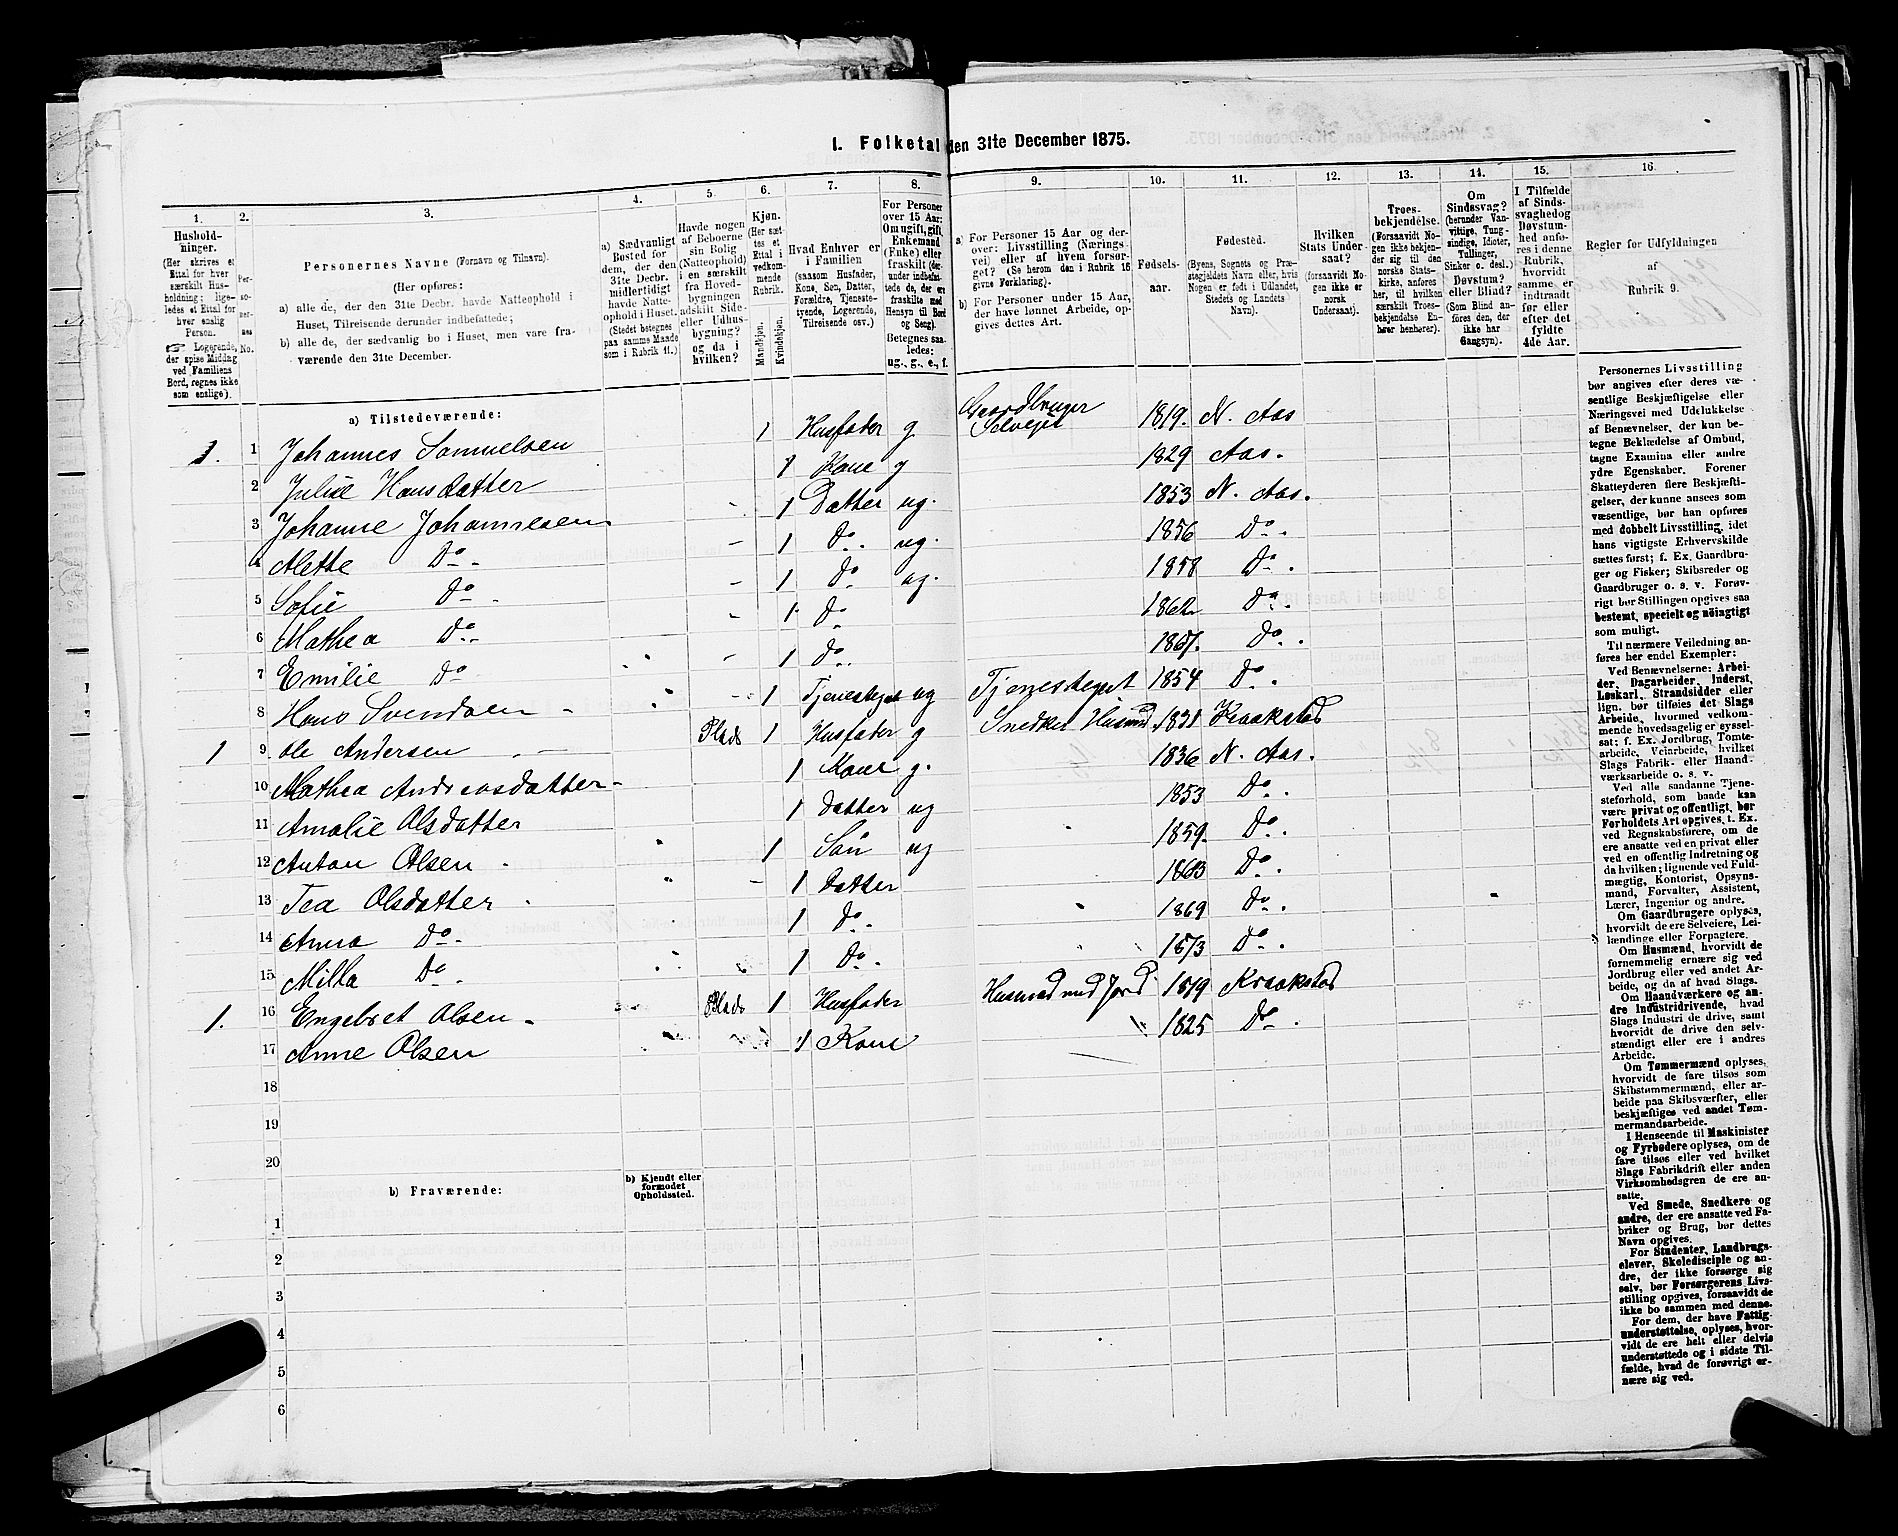 I. Folketal den 31te December 1875.
1. 2. 3. 4. 5. 6. 7. 8. 9. 10. 11. 12. 13. 14. 15. 16.
Hushold-
ninger.
(Her skrives et
Ettal for hver
særskilt Hus-
holdning; lige-
ledes et Ettal for
hver enslig
Person.
☞ Logerende,
der spise Middag
ved Familiens
Bord, regnes ikke
som enslige).
Per-
so-
ner-
nes
No.
Personernes Navne (Fornavn og Tilnavn).
(Her opføres:
a) alle de, der den 31te Decbr. havde Natteophold i
Huset, Tilreisende derunder indbefattede;
b) alle de, der sædvanlig bo i Huset, men vare fra-
værende den 31te December.
a) Sædvanligt
Bosted for
dem, der den
31te Decbr.
midlertidigt
havde Natte-
ophold i Huset.
(Stedet betegnes
paa samme Maade
som i Rubrik 11.)
Havde nogen
af Beboerne
sin Bolig
(Natteophold)
i en særskilt
fra Hoved-
bygningen
adskilt Side-
eller Udhus-
bygning?
og da i
hvilken?
Kjøn.
(Her sæt-
tes et
Ettal i
vedkom-
mende
Rubrik.
Mandkjøn.
Kvindekjøn.
Hvad Enhver er
i Familien
(saasom Husfader,
Kone, Søn, Datter,
Forældre, Tjeneste-
tyende, Logerende,
Tilreisende osv.)
For Personer
over 15 Aar:
Om ugift, gift,
Enkemand
(Enke) eller
fraskilt (der-
under indbefat-
tede de, der ere
fraskilte med
Hensyn til Bord
og Seng).
Betegnes saa-
ledes:
ug., g., e., f.
a) For Personer 15 Aar og der-
over: Livsstilling (Nærings-
vei) eller af hvem forsør-
get? (Se herom den i Rubrik 16
givne Forklaring).
b) For Personer under 15 Aar,
der have lønnet Arbeide, op-
gives dettes Art.
Fødsels-
aar.
Fødested.
(Byens, Sognets og Præ-
stegjeldets Navn eller, hvis
Nogen er født i Udlandet,
Stedets og Landets
Navn).
Hvilken
Stats Under-
saat?
(forsaavidt No-
gen ikke er
norsk
Undersaat).
Troes-
bekjendelse.
(Forsaavidt No-
gen ikke bekjen-
der sig til den
norske Stats-
kirke, anføres
her, til hvilken
særskilt Troes-
bekjendelse En-
hver henhører).
Om
Sindssvag?
(herunder Van-
vittige, Tung-
sindige, Idioter,
Tullinger,
Sinker o. desl.)
Døvstum?
eller Blind?
(Som Blind an-
føres den, der
ikke har
Gangsyn).
I Tilfælde
af Sinds-
svaghed og
Døvstum-
hed anfø-
res i denne
Rubrik,
hvorvidt
samme er
indtraadt
før eller
efter det
fyldte
4de Aar.
Regler før Udfyldningen
af
Rubrik 9.
a) Tilstedeværende:
1. 1 Johannes Samuelsen 1 Husfader g Gaardbruger Selveyer 1819. N. Aas
2 Julie Hansdatter 1 Kone g 1829 Aas.
3 Johanne Johannesen 1 Datter ug. 1853 N. Aas.
4 Alette Do 1 Do. ug. 1856 Do.
5 Sofie Do 1 Do ug. 1858 Do.
6 Mathea Do 1 Do 1862 Do.
7 Emilie Do 1 Do. 1867. Do.
8 Hans Svendsen 1 ug 1854 Do.
1 9 Ole Andersen Plads 1 Husfader g Snedker 1831 Kraakstad
10 Mathea Andreasdatter 1 Kone g. 1836 N. Aas.
11 Amalie Olsdatter 1 Datter ug 1853 Do.
12 Anton Olsen 1 Søn ug 1859. Do.
13 Tea Olsdatter 1 Datter 1863 Do.
14 Anna Do. 1 Do. 1869 Do.
15 Milla Do 1 Do. 1873 Do.
1. 16 Engebret Olsen Plads 1 Husfader Husmand med Jord 1819 Kraakstad
17 Anne Olsen 1 Kone 1825 Do.
18
19
20
b) Fraværende:
b) Kjendt eller
formodet
Opholdssted.
1
2
3
4
5
6
Personernes Livsstilling
bør angives efter deres væ-
sentlige Beskjæftigelse eller
Næringsvei med Udelukkelse
af Benævnelser, der kun be-
tegne Beklædelse af Ombud,
tagne Examina eller andre
ydre Egenskaber. Forener
Skatteyderen flere Beskjæfti-
gelser, der kunne ansees som
væsentlige, bør han opføres
med dobbelt Livsstilling, idet
hans vigtigste Erhvervskilde
sættes først; f. Ex. Gaardbru-
ger og Fisker; Skibsreder og
Gaardbruger o. s. v. Forøv-
rigt bør Stillingen opgives saa
bestemt, specielt og nøiagtigt
som muligt.
Til nærmere Veiledning an-
føres her endel Exempler:
Ved Benævnelserne: Arbei-
der, Dagarbeider, Inderst,
Løskarl, Strandsidder eller
lign. bør tilføies det Slags
Arbeide, hvormed vedkom-
mende hovedsagelig er syssel-
sat; f. Ex. Jordbrug, Tomte-
arbeide, Veiarbeide, hvilket
Slags Fabrik- eller Haand-
værksarbeide o. s. v.
Ved alle saadanne Tjene-
steforhold, som baade kan
være privat og offentligt, bør
Forholdets Art opgives, t. Ex.
ved Regnskabsførere, om de
ere ansatte ved en privat eller
ved en offentlig Indretning og
da hvilken; lignende ved Fuld-
mægtig, Kontorist, Opsyns-
mand, Forvalter, Assistent,
Lærer, Ingeniør og andre.
Om Gaardbrugere oplyses,
hvorvidt de ere Selveiere, Lei-
lændinge eller Forpagtere.
Om Husmænd, hvorvidt de
fornemmelig ernære sig ved
Jordbrug eller ved andet Ar-
beide, og da af hvad Slags.
Om Haandværkere og an-
dre Industridrivende, hvad
Slags Industri de drive, samt
hvorvidt de drive den selv-
stændigt eller ere i andres
Arbeide.
Om Tømmermænd oplyses,
hvorvidt de fare tilsøs som
Skibstømmermænd, eller ar-
beide paa Skibsværfter, eller
beskjæftiges ved andet Tøm-
mermandsarbeide.
I Henseende til Maskinister
og Fyrbødere oplyses, om de
fare tilsøs eller ved hvilket
Slags Fabrikdrift eller anden
Virksomhedsgren de ere an-
satte.
Ved Smede, Snedkere og
andre, der ere ansatte ved Fa-
briker og Brug, bør dettes
Navn opgives.
For Studenter, Landbrugs-
elever, Skoledisciple og an-
dre, der ikke forsørge sig
selv, bør Forsørgerens Livs-
stilling opgives, forsaavidt de
ikke bo sammen med denne.
For dem, der have Fattig-
understøttelse, oplyses, hvor-
vidt de ere helt eller delvis
understøttede og i sidste Til-
fælde, hvad de forøvrigt er-
nære sig ved.